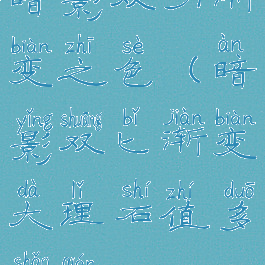 暗影双匕渐
biàn zhī sè àn
变之色(暗
yǐng shuāng bǐ jiàn biàn
影双匕渐变
dà lǐ shí zhí duō
大理石值多
shǎo qián